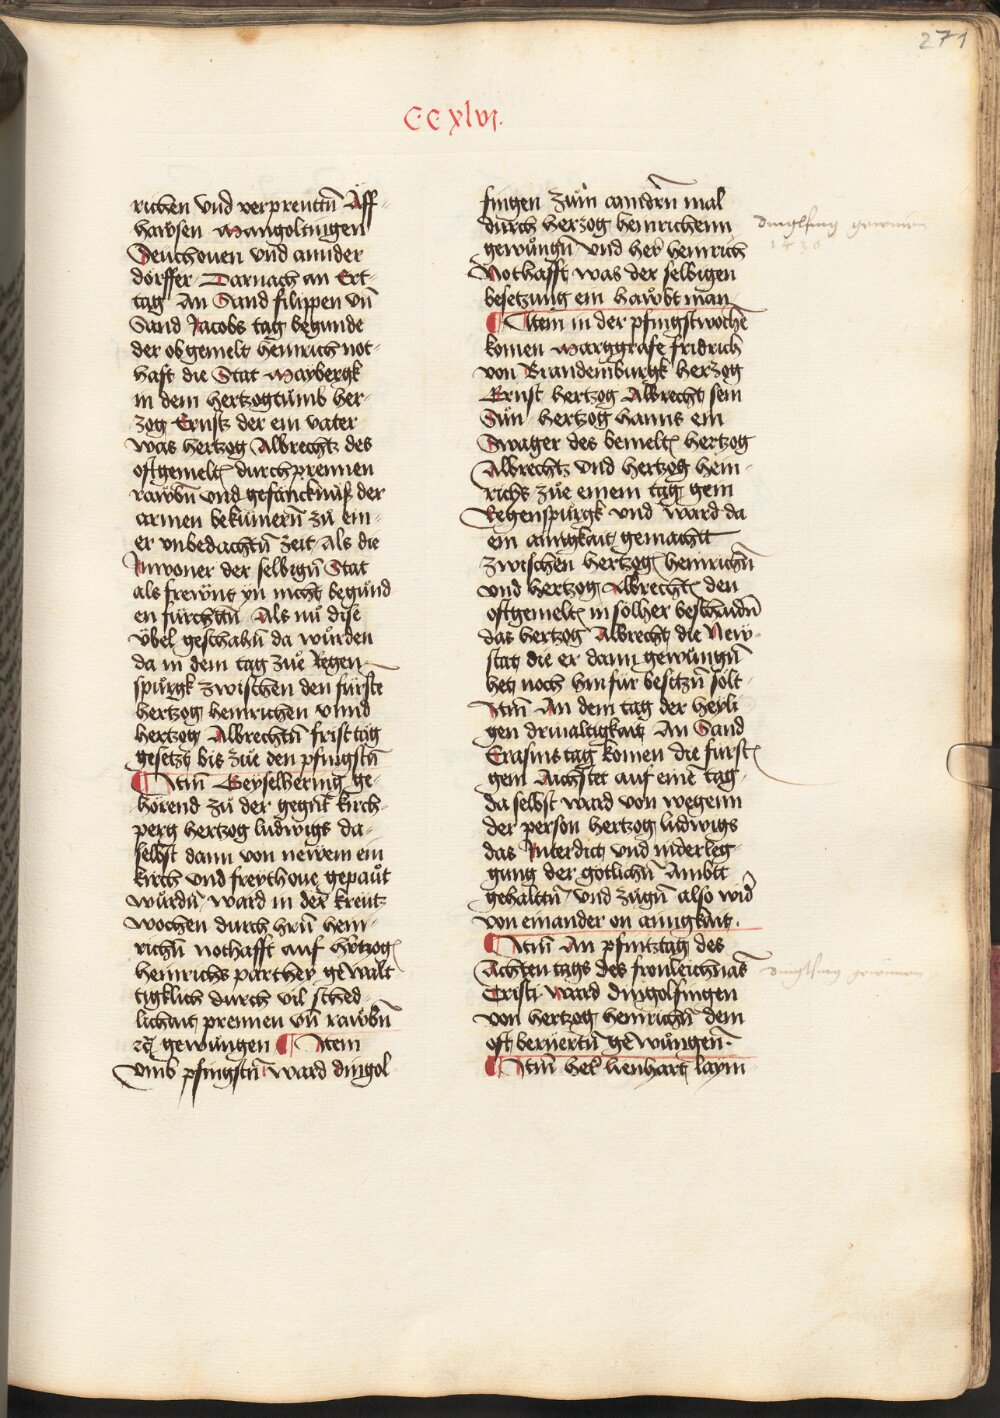 271
CCxlvi.
richen vnd verprenttn̄ Äff-
hawsen Mangoltingen
Deuchouen vnd annder
dörffer Darnach an Ert-
tag An Sand filippen vn̄
Sand Jacobs tag begunde
der obgemelt heinrich not-
haft die Stat Maybergk
in dem hertzogtumb her-
zog Ernsts der ein vater
was hertzog Albrechtz des
oftgemeltn̄ durch prennen
rawbn̄ vnd gefäncknüß der
armen bekümern̄ zu ein-
er vnbedachtn̄ zeit Als die
Inwoner der selbign̄ Stat
als freyung yn nicht begund
en fürchttn̄ Als nu dise
vbel geschahn̄ da wurden
da in dem tag zue Regen-
spurgk zwischen den fürste
hertzog heinrichen vnnd
hertzog Albrechtn̄ frist täg
gesetzt bis zue den pfingstn̄
Itm̄ Geyselhering ge-
hörend zu der gegnt kirch-
perg hertzog ludwigs da-
selbst dann von newem ein
kirch vnd freythoue gepaut
wurdn̄ ward in der kreutz
wochen durch hrn̄ hein-
richn̄ nothafft auf hertzog
heinrichs parthey gewalt
tigklich durch vil sched-
lichait prennen vn̄ rawbn̄
etc gewungen Item
vmb pfingstn̄ ward dingol
fingen zum anndrn̄ mal
durch herzog heinrichenn
gewungn̄ vnd her heinrich
Nothafft was der selbigen
besetzung ein hawbt man
Item in der pfingstwochē
komen Marggrafe fridrich
von Brandemburgk herzog
Ernst hertzog Albrecht sein
Sün hertzog hanns ein
Swager des bemeltn̄ hertzog
Albrechtz vnd hertzog hein-
richs zue einem tag gein
Regenspurgk vnd ward da
ein ainigkait gemachtt
zwischen hertzog heinrichn̄
vnd hertzog Albrechtn̄ den
oftgemeltn̄ in solher beschaidn̄
das hertzog Albrecht die New-
stat die er dann gewungn̄
het noch hin für besitzn̄ solt
Itm̄ An dem tag der heyli
gen driualtigkait An Sand
Erasms tag komen die furstn̄
gein Aichstet auf einē tag
da selbst ward von wegenn
der person hertzog ludwigs
das Interdict vnd niderleg-
gung der götlichn̄ Ambtt
gehaltn̄ vnd zugn̄ also wider
von einander on ainigkait.
Itm̄ An pfintztag des
Achten tags des fronleichnas
Cristi ward dingolfingen
von hertzog heinrichn̄ dem
oft beruertn̄ gewungen.
Itm̄ her lienhart laym-
dinglfing gewunen
dinglfing gewunen